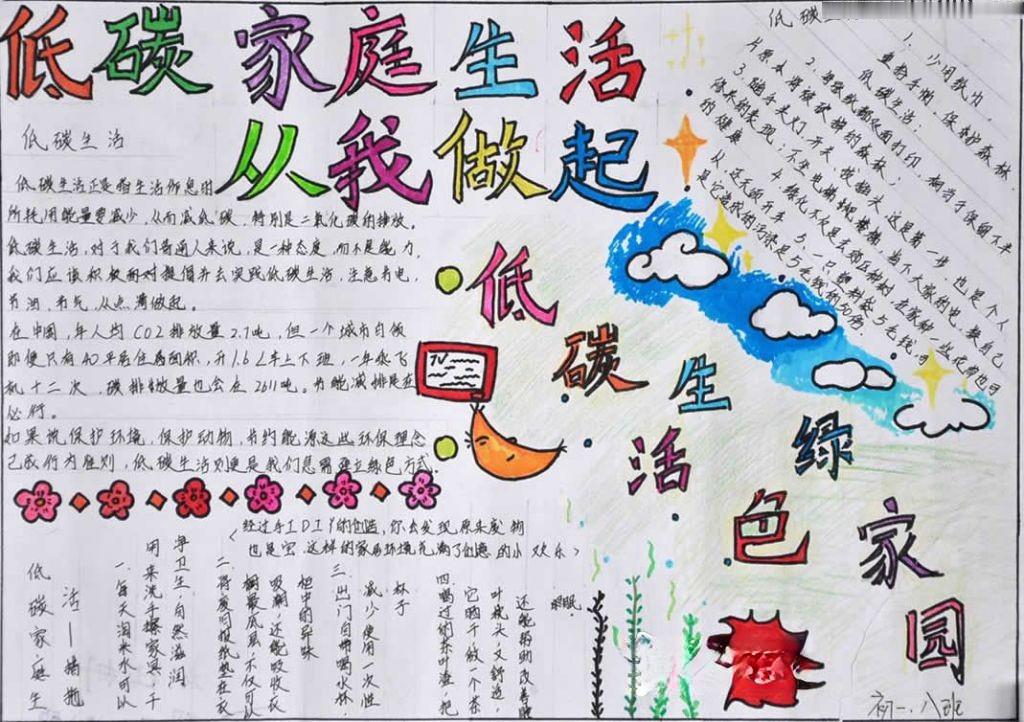 低碳家庭生活
从我做起
低碳生活
低碳生活正是指生活作息时
所耗用能量要减少，从而减低碳，特别是二氧化碳的排放。
低碳生活，对于我们普通人来说，是一种态度，而不是能力，
我们应该积极面对提倡并去实践低碳生活，注意节电，
节油，节气，从点滴做起。
在中国，年人均CO2排放量2.7吨，但一个城市白领
即便只有40平居住面积，开1.6L车上下班，一年乘飞
机十二次，碳排放量也会在2611吨。节能减排是在
必行。
如果说保护环境，保护动物，节约能源这些环保理念
已成行为准则，低碳生活则更是我们急需建立绿色方式。
低碳生
1. 少用纸巾，
重拾手帕，保护森林，
低碳生活；
2. 每张纸都双面打印，相当于保留下半
片原本将被砍掉的森林；
3. 随手关灯、开关、拔插头，这是第一步，也是个人
修养的表现；不坐电梯爬楼梯，省下大家的电，换自己
的健康
4. 绿化不仅是去郊区种树，在家种一些花草也可
5. 一只塑料袋5毛钱，可
是它造成的污染是5毛钱的50倍
TV
低碳生活
绿色家园
（经过手工DIY的创造，你会发现，原来废物
也是宝，这样的家居环境充满了创意的小欢乐）
低碳家庭生
活——措施
一.每天淘米水可以
用来洗手擦家具，干
净卫生，自然滋润
二.将废旧报纸垫在衣
橱最底层，不仅可以
吸潮，还能吸收衣
柜中的异味
三.出门自带喝水杯，
减少使用一次性
杯子
四.喝过的茶叶渣，把
它晒干做一个茶
叶枕头，又舒适，
还能帮助改善睡
眠。
初一、八班